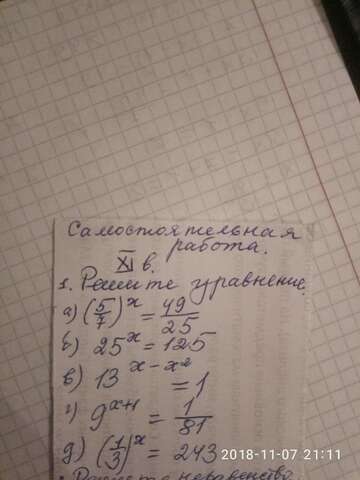 Самостоятельная
работа.
XI в.
1. Решите уравнение.
а) (5/7)^x = 49/25
б) 25^x = 125
в) 13^(x - x²) = 1
г) 9^(x+1) = 1/81
д) (1/3)^x = 243
2018-11-07 21:11